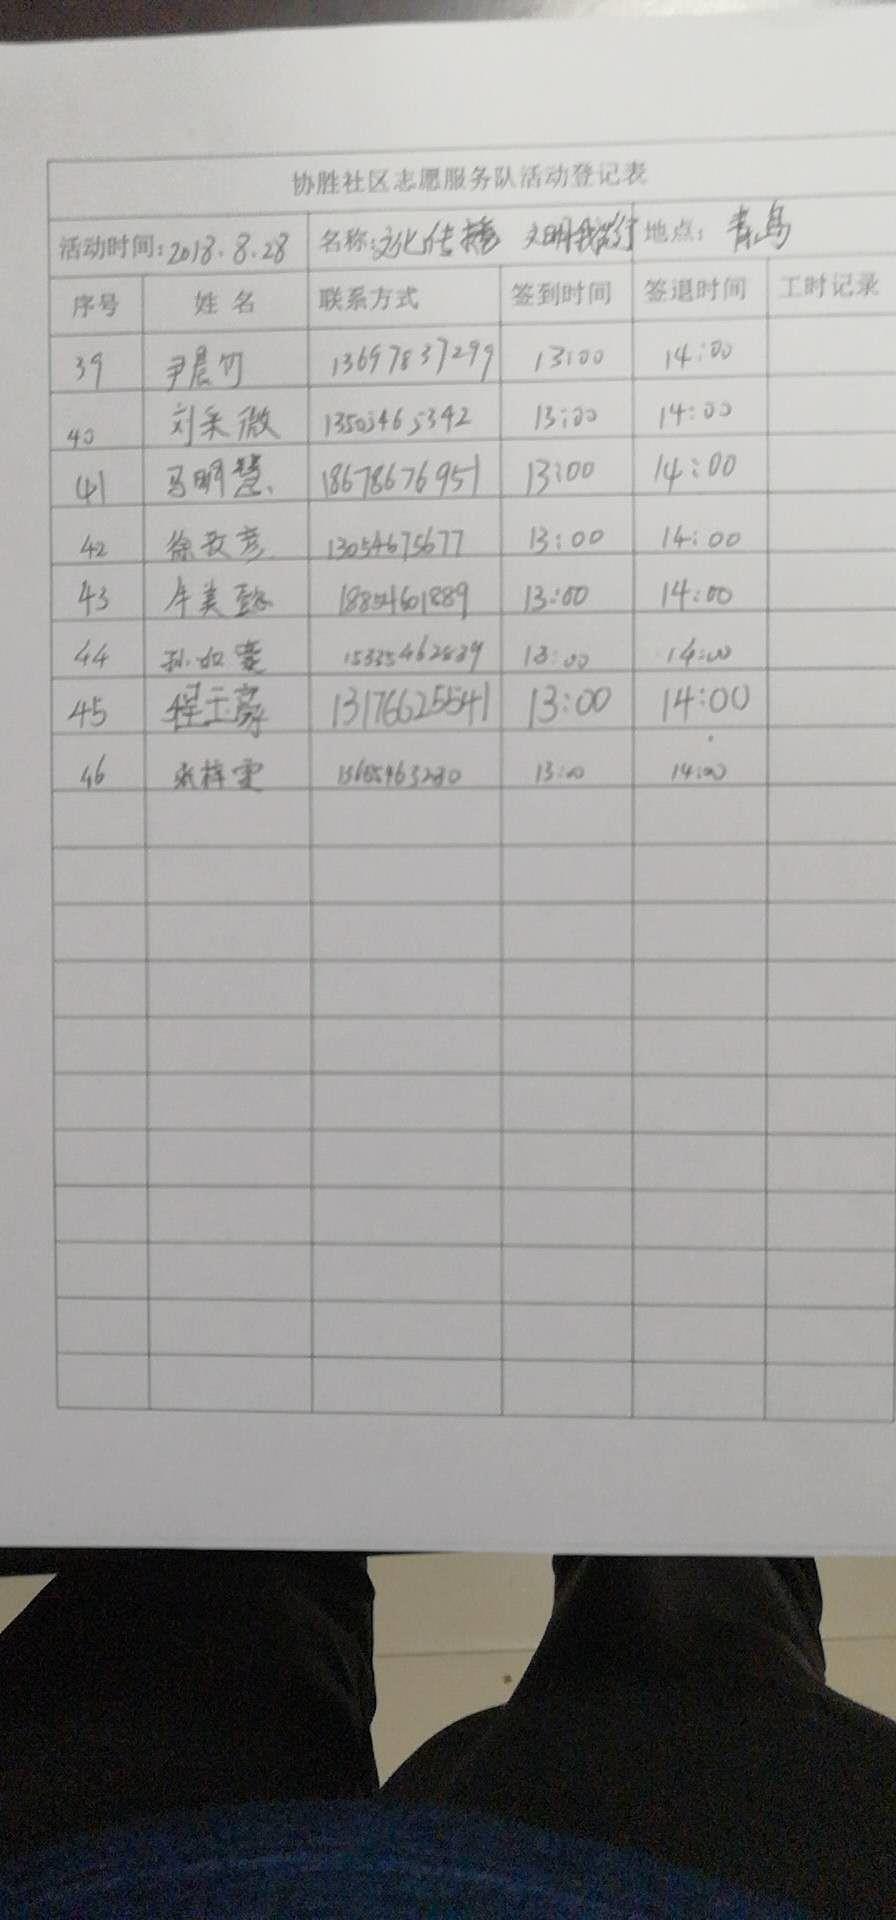 协胜社区志愿服务队活动登记表
活动时间:2018.8.28 名称:文化传播 文明我先行 地点:青岛
序号 姓名 联系方式 签到时间 签退时间 工时记录
39 尹晨竹 13697837299 13:00 14:00
40 刘采微 13503465342 13:00 14:00
41 马明慧 18678676951 13:00 14:00
42 徐 彦 13054675677 13:00 14:00
43 牛美懿 18854601889 13:00 14:00
44 孙如雯 15335462839 13:00 14:00
45 程玉 13176625541 13:00 14:00
46 张梓雯 13:00 14:00